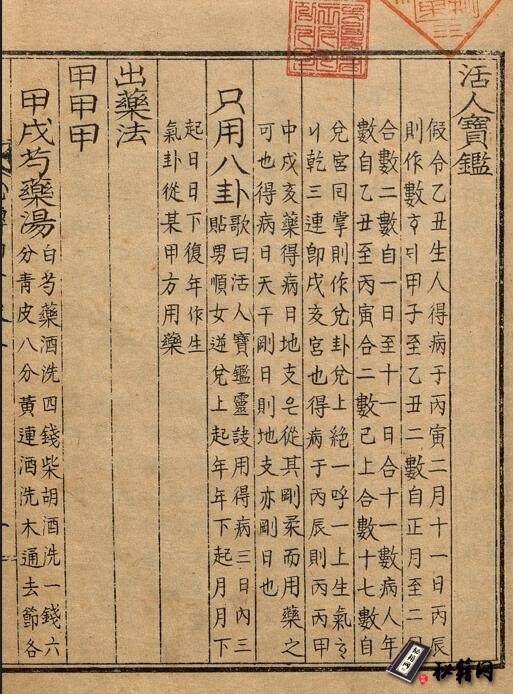 活人寶鑑
假令乙丑生人得病于丙寅二月十一日丙辰
則作數ᄒᆞᄃᆡ甲子至乙丑二數自正月至二
合數二數自一日至十一日合十一數病人年
數自乙丑至丙寅合二數已上合數十七數自
兌宮囙掌則作兌卦兌上絶一呼一上生氣ᄒᆞ
니乾三連卽戌亥宮也得病于丙辰則丙丙甲
中戌亥藥得病日地支은從其剛柔而用藥之
可也得病日天干剛日則地支亦剛日也
只用八卦
歌曰活人寶鑑靈用得病三日內三
貼男順女逆兌上起年年下起月月下
起日日下復年作生
氣卦從某甲方用藥
出藥法
甲甲甲
甲戌芍藥湯
白芍藥酒洗四錢柴胡酒洗一錢六
分靑皮八分黃連酒洗木通去節各
秘籍网